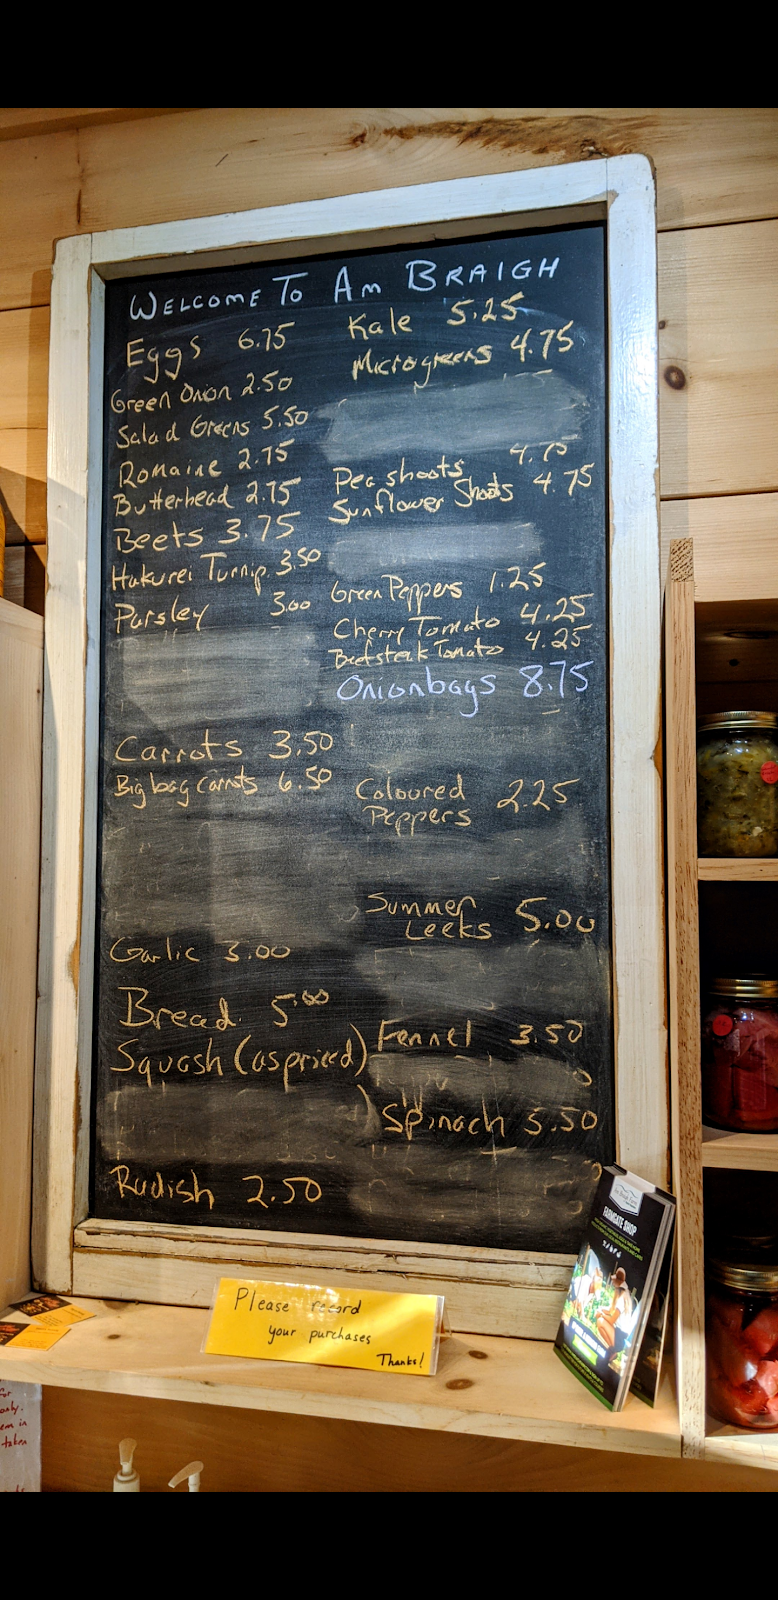 WELCOME TO AM BRAIGH
Eggs 6.75
Green Onion 2.50
Salad Greens 5.50
Romaine 2.75
Butterhead 2.75
Beets 3.75
Hakurei Turnip 3.50
Parsley 3.00
Carrots 3.50
Big bag carrots 6.50
Garlic 3.00
Bread 5.00
Squash (as priced)
Radish 2.50
Kale 5.25
Microgreens 4.75
Pea shoots 4.75
Sunflower Shoots 4.75
Green Peppers 1.25
Cherry Tomato 4.25
Beefsteak Tomato 4.25
Onion bags 8.75
Coloured 2.25
Peppers
Summer
Leeks 5.00
Fennel 3.50
Spinach 5.50
Please record
your purchases
Thanks!
FARMGATE SHOP
for
only.
em in
taken